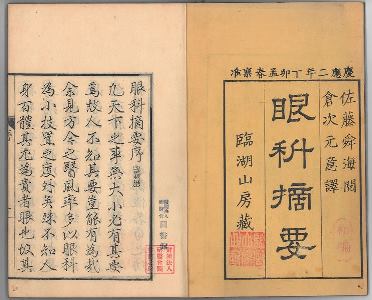 慶應三年丁卯孟春稟准
佐藤舜海閲
倉次元意譯
眼科摘要
臨湖山房藏
眼科摘要序
凡天下之事無大小尤有其要
焉故人不知其要豈能有為哉
余見方今之醫風率多以眼科
為小技置之度外蓋殊不知人
身百體其尤為貴者眼也故其